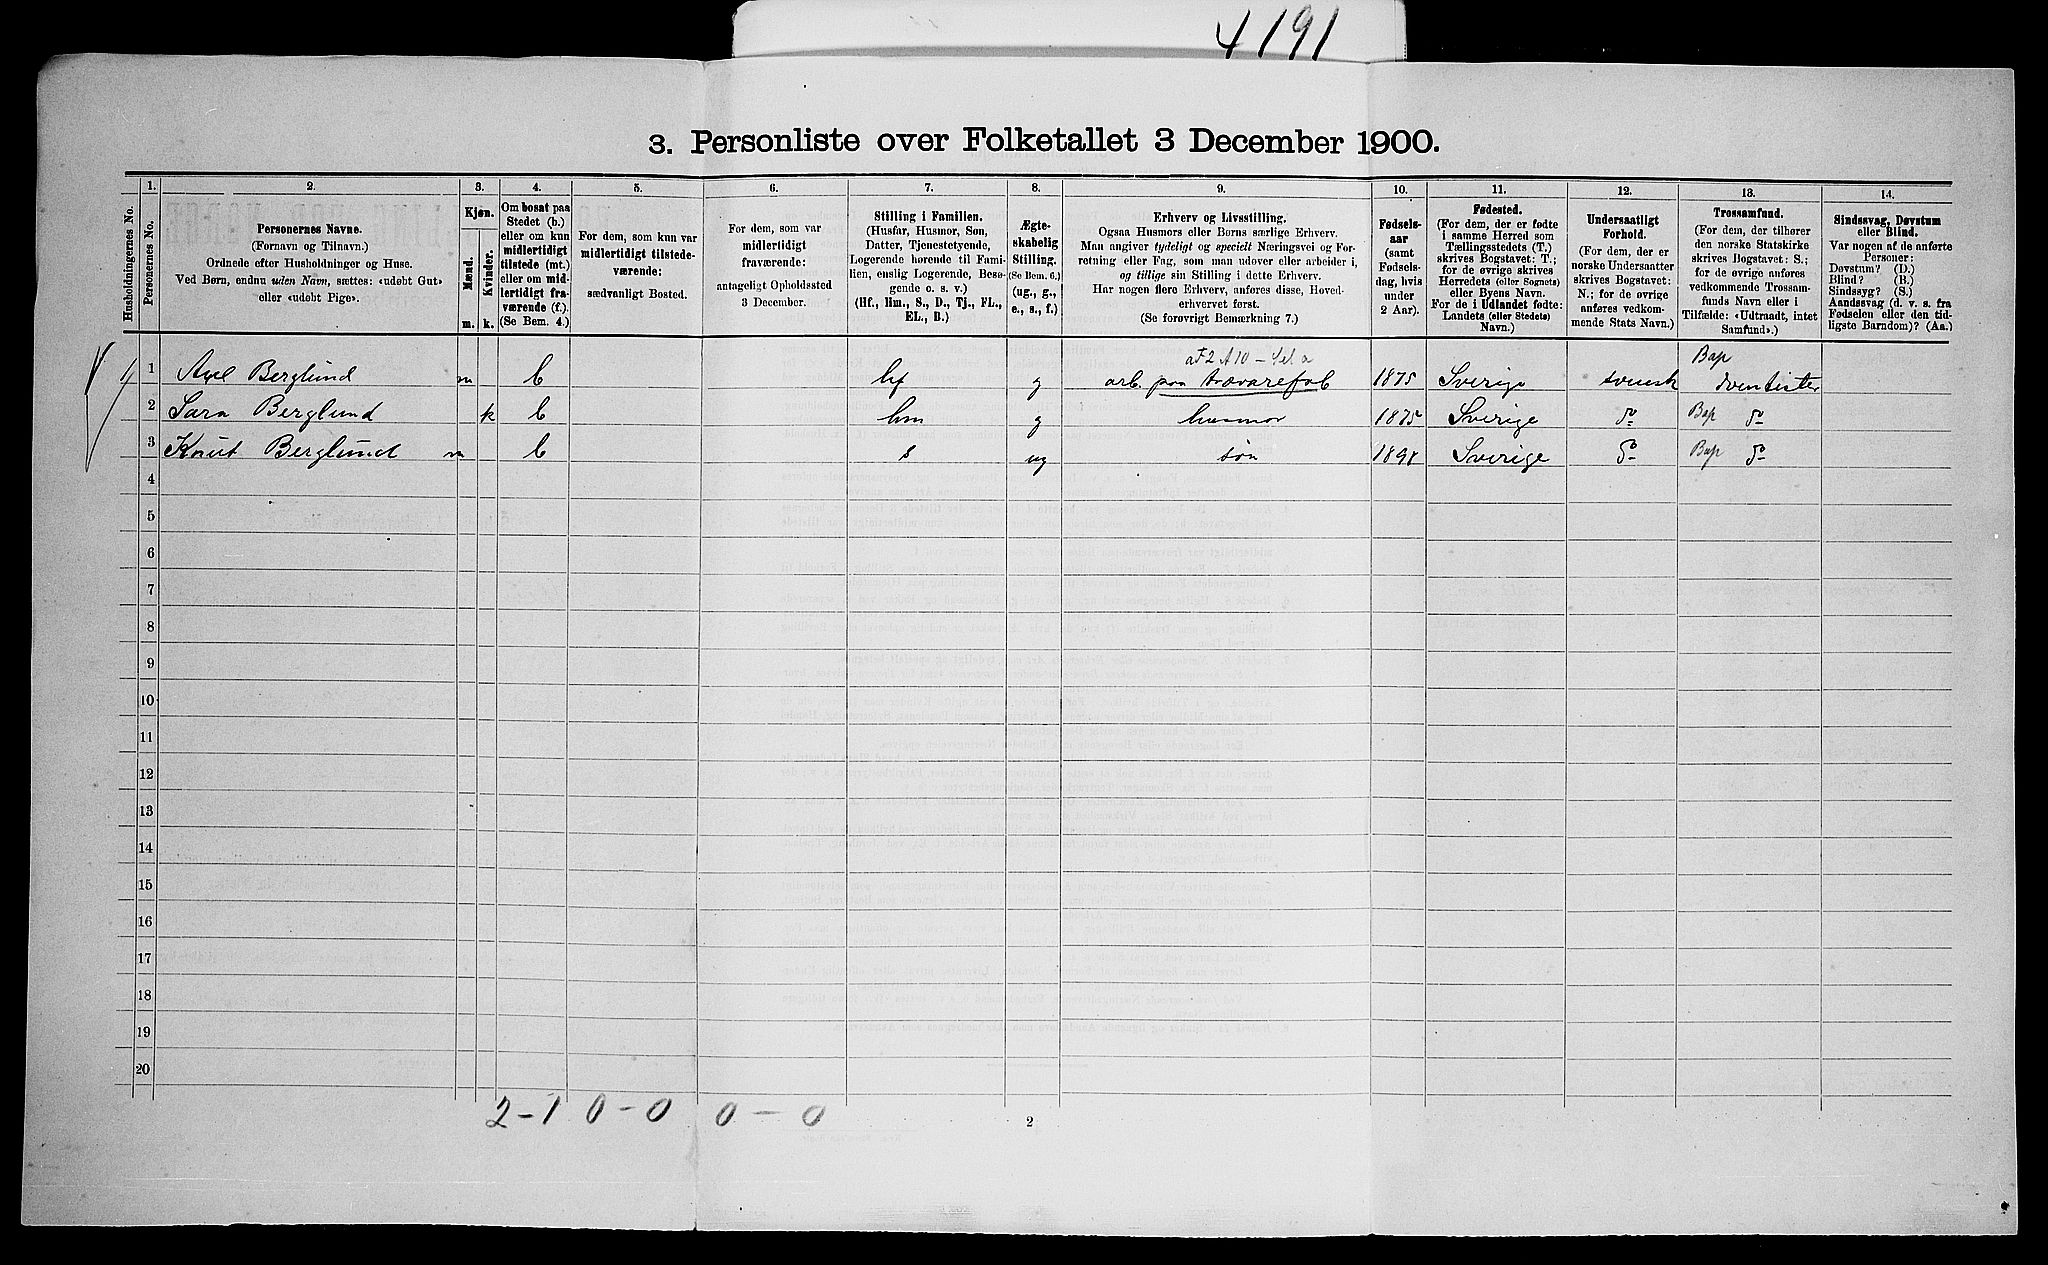 4191
3. Personliste over Folketallet 3 December 1900.
Husholdningernes No.
1.
Personernes No.
2.
Personernes Navne.
(Fornavn og Tilnavn.)
Ordnede efter Husholdninger og Huse.
Ved Børn, endnu uden Navn, sættes: «udøbt Gut»
eller «udøbt Pige».
3.
Kjøn.
Mænd.
Kvinder.
m. k.
4.
Om bosat paa
Stedet (b.)
eller om kun
midlertidigt
tilstede (mt.)
eller om mid-
lertidigt fra-
værende (f.).
(Se Bem. 4.)
5.
For dem, som kun var
midlertidigt tilstede-
værende:
sædvanligt Bosted.
6.
For dem, som var
midlertidigt
fraværende:
antageligt Opholdssted
3 December.
7.
Stilling i Familien.
(Husfar, Husmor, Søn,
Datter, Tjenestetyende,
Logerende hørende til Fami-
lien, enslig Logerende, Besø-
gende o. s. v.)
(Hf., Hm., S., D., Tj., FL.,
EL., B.)
8.
Ægte-
skabelig
Stilling.
(Se Bem. 6.)
(ug., g.,
e., s., f.)
9.
Erhverv og Livsstilling.
Ogsaa Husmors eller Børns særlige Erhverv.
Man angiver tydeligt og specielt Næringsvei og For-
retning eller Fag, som man udover eller arbeider i,
og tillige sin Stilling i dette Erhverv.
Har nogen flere Erhverv, anføres disse, Hoved-
erhvervet først.
(Se forøvrigt Bemærkning 7.)
10.
Fødsels-
aar
(samt
Fødsels-
dag, hvis
under
2 Aar).
11.
Fødested.
(For dem, der er fødte
i samme Herred som
Tællingsstedets (T.)
skrives Bogstavet: T.;
for de øvrige skrives
Herredets (eller Sognets)
eller Byens Navn.
For de i Udlandet fødte:
Landets (eller Stedets)
Navn.)
12.
Undersaatligt
Forhold.
(For dem, der er
norske Undersaatter
skrives Bogstavet:
N.; for de øvrige
anføres vedkom-
mende Stats Navn.)
13.
Trossamfund.
(For dem, der tilhører
den norske Statskirke
skrives Bogstavet: S.;
for de øvrige anføres
vedkommende Trossam-
funds Navn eller i
Tilfælde: «Udtraadt, intet
Samfund».)
14.
Sindssvag, Døvstum
eller Blind.
Var nogen af de anførte
Personer:
Døvstum? (D.)
Blind? (B.)
Sindssyg? (S.)
Aandssvag (d. v. s. fra
Fødselen eller den tid-
ligste Barndom)? (Aa.)
1 Axel Berglund m b hf g arb. paa trævarefab 1875 Sverige svensk Bap
2 Sara Berglund k b hm g husmor 1875 Sverige do Bap do
3 Knut Berglund m b s ug søn 1898 Sverige do Bap do
4
5
6
7
8
9
10
11
12
13
14
15
16
17
18
19
20
2-1 0-0 0-0
2